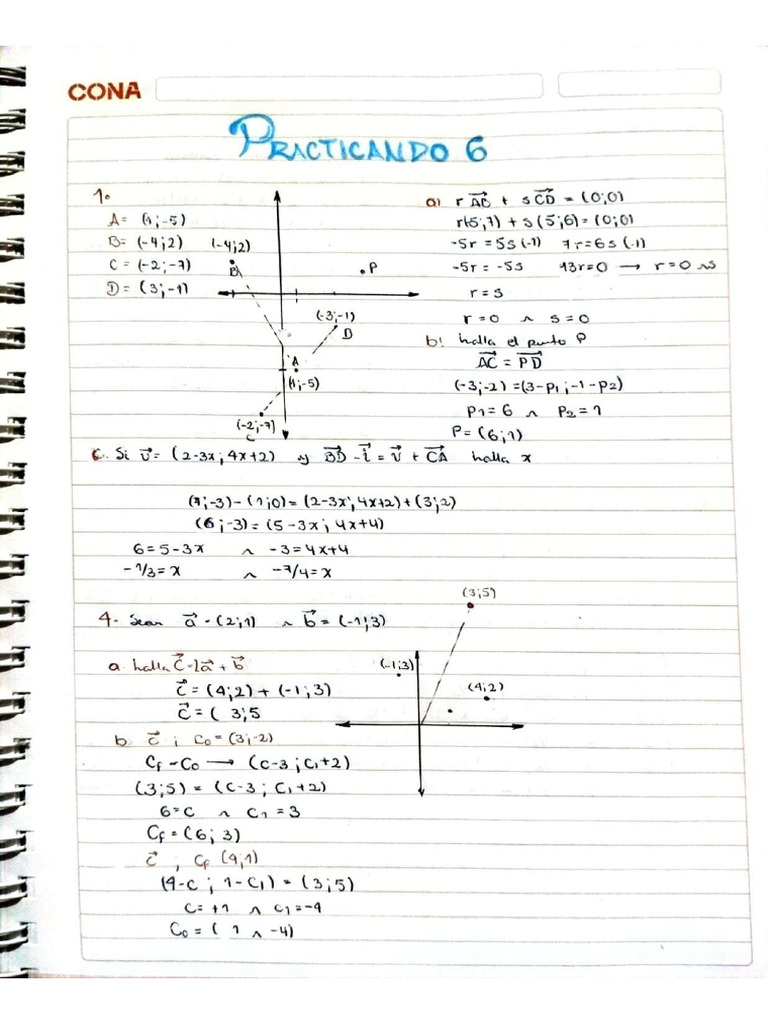 CONA
PRACTICANDO 6
1.
A= (1;-5)
B= (-4;2)
C= (-2;-7)
D= (3;-1)
(-4;2)
B
P
(-3;-1)
D
A
(1;-5)
(-2;-7)
C
a) r AB + s CD = (0;0)
r(-5;7) + s(5;6) = (0;0)
-5r = 5s (-1) 7r = 6s (-1)
-5r = -5s 13r=0 → r=0 ∧ s
r = s
r=0 ∧ s=0
b! halla el punto P
AC = PD
(-3;-2) = (3-P1;-1-P2)
P1=6 ∧ P2=1
P= (6;1)
c. Si v= (2-3x; 4x+2) y BD - i = v + CA halla x
(7;-3)-(1;0)=(2-3x;4x+2)+(3;2)
(6;-3)=(5-3x; 4x+4)
6=5-3x ∧ -3=4x+4
-1/3=x ∧ -7/4=x
4- Sean a = (2;1) ∧ b = (-1;3)
(3;5)
(-1;3)
(4;2)
a. halla c=2a + b
c = (4;2) + (-1;3)
c = ( 3;5
b c ; C0 = (3;-2)
Cf - C0 → (C-3; C1+2)
(3;5) = (C-3; C1+2)
6=C ∧ C1=3
Cf = (6; 3)
c ; Cf (4;1)
(4-C; 1-C1) = (3;5)
C= +1 ∧ C1=-4
C0 = ( 1 ∧ -4)